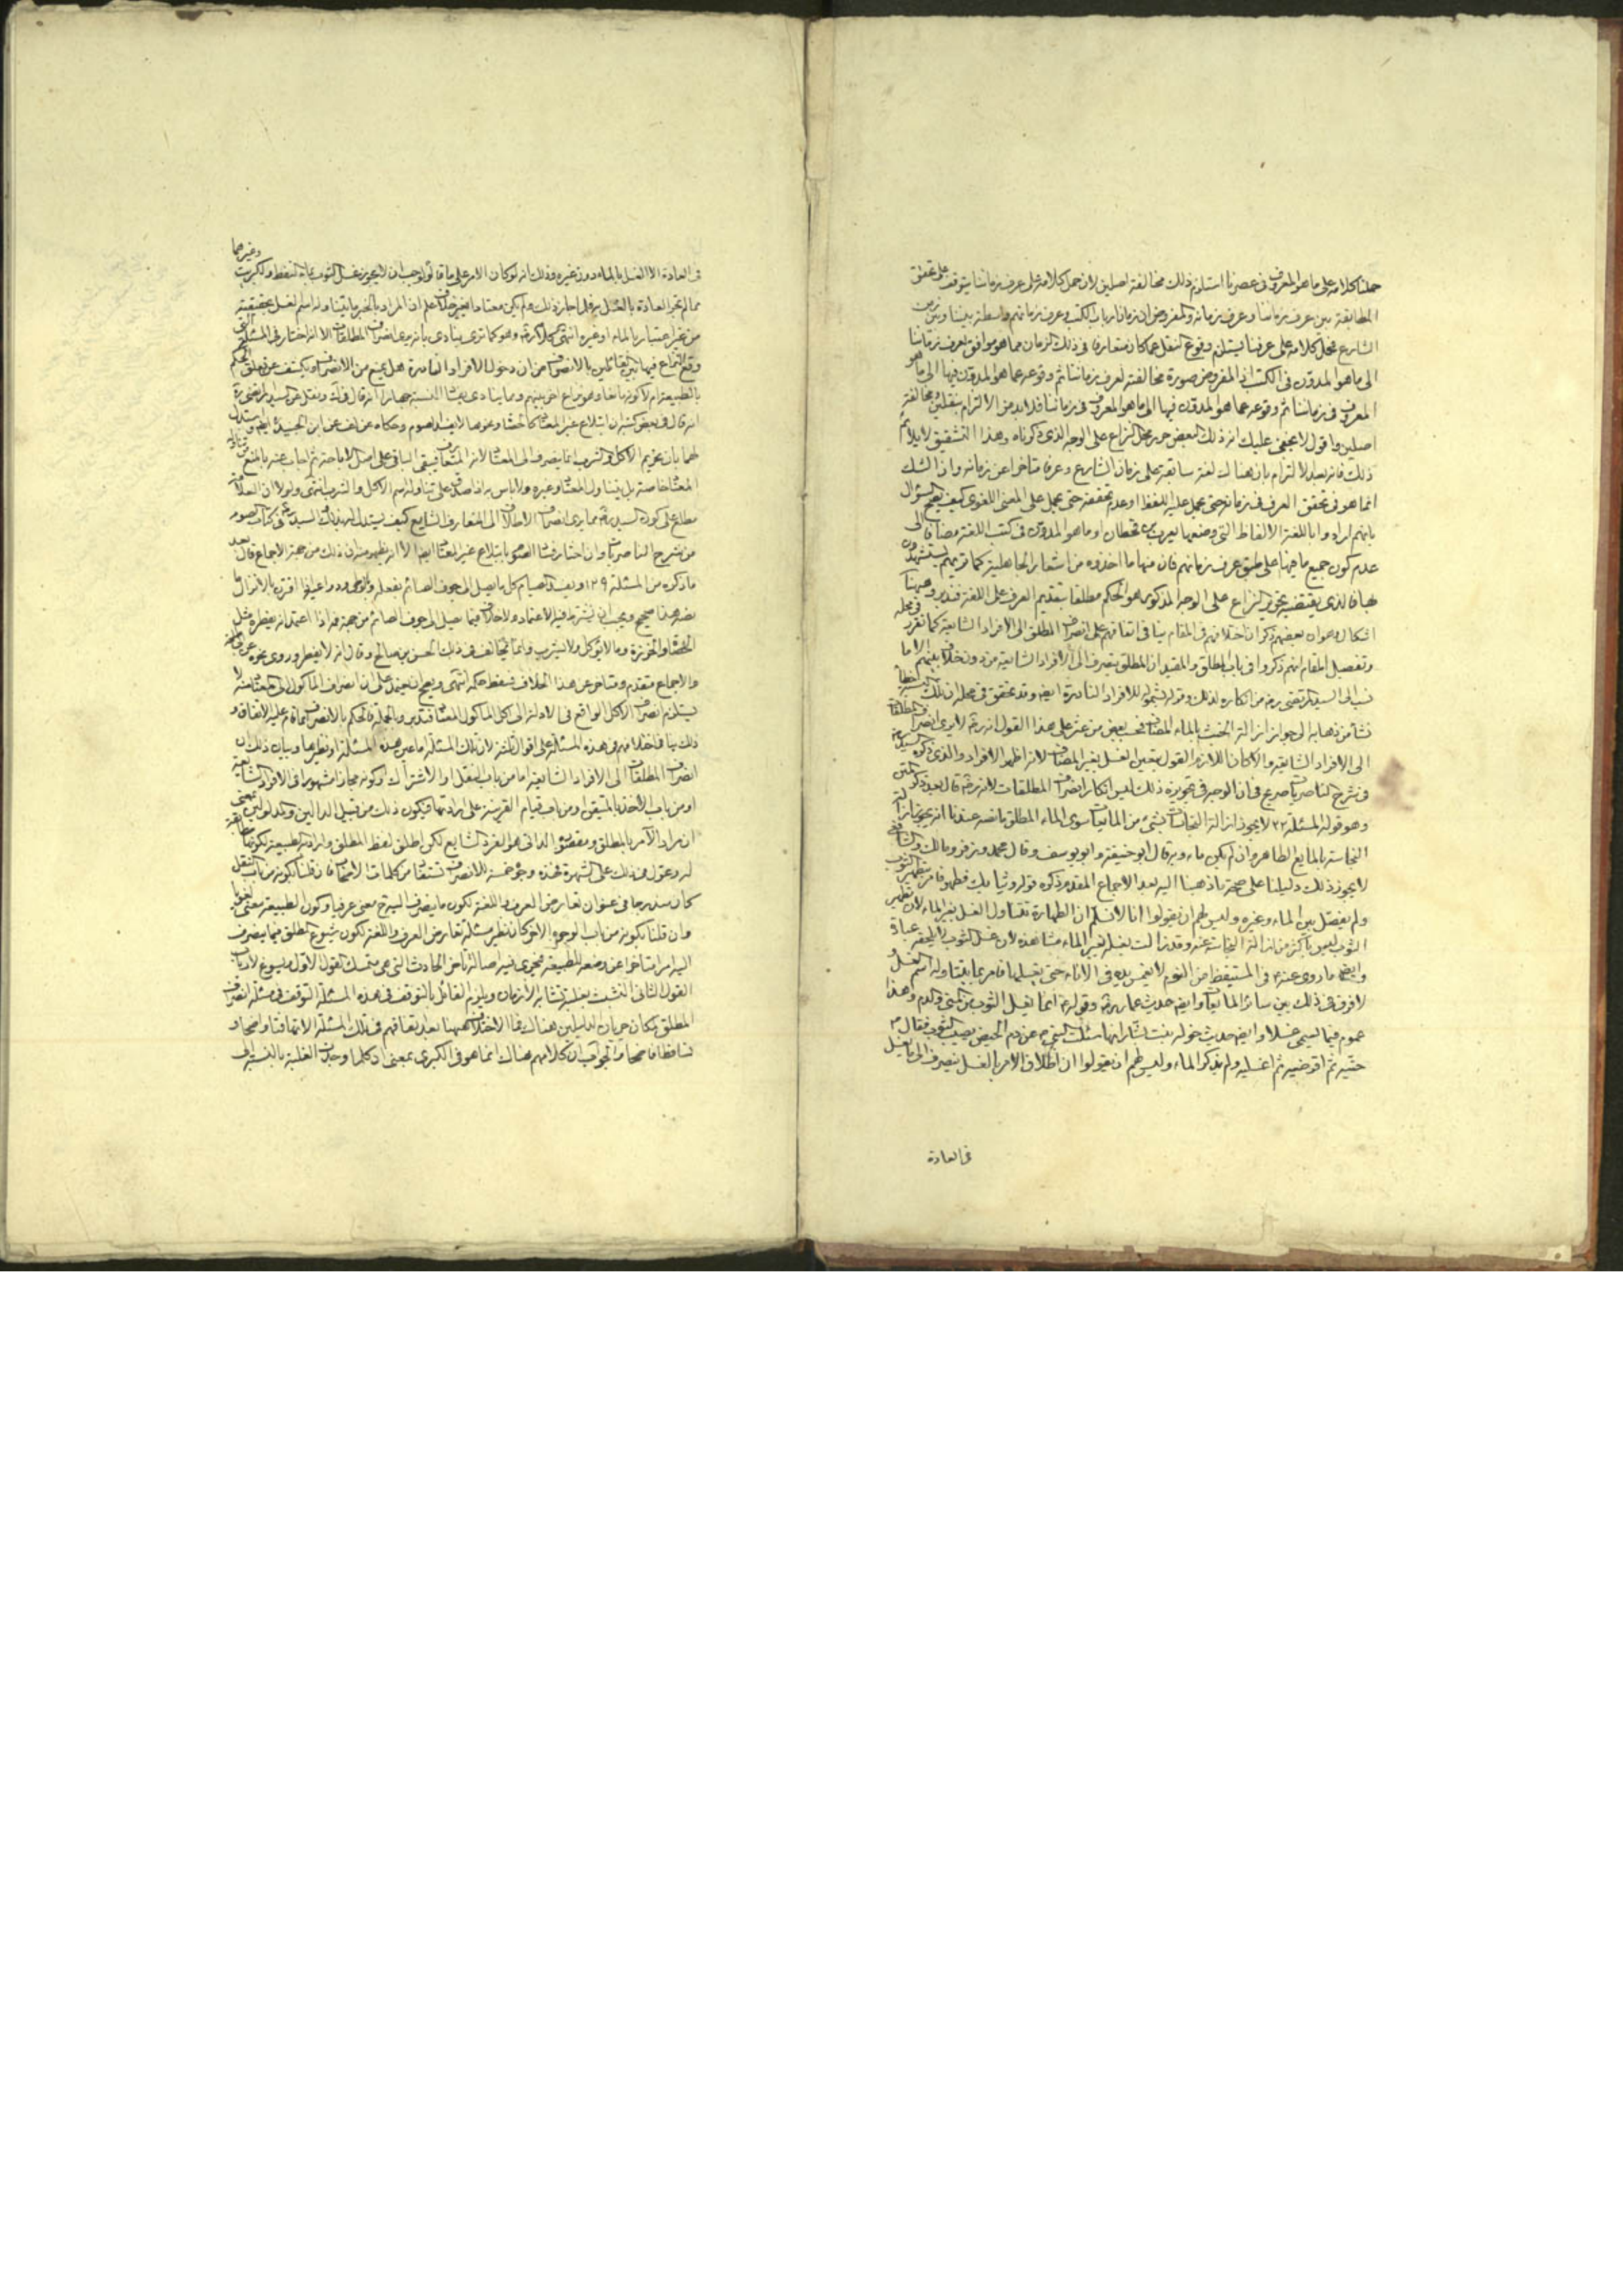 حملنا كلامه على ما هو المعروف فى عصرنا استلزم ذلك مخالفة اصلين لان حمل كلامه على عرف زماننا يتوقف على تحقق
المطابقة بين عرف زماننا وعرف زمانه والمفروض ان زمان ارباب الكتب وعرف زمانهم واسطة بيننا وبين زمن
الشارع فحمل كلامه على عرفنا يستلزم وقوع النقل عما كان متعارفا فى ذلك الزمان مما هو موافق لعرف زماننا
الى ما هو المدون فى الكتب اذ المفروض صورة مخالفته لعرف زماننا ثم وقوعه عما هو المدون فيها الى ما هو
المعروف فى زماننا ثم وقوعه عما هو المدون فيها الى ما هو المعروف فى زماننا فلا بد من الالتزام بنقلين ومخالفة
اصلين واقول لا يخفى عليك ان ذلك البعض حرر محل النزاع على الوجه الذى ذكرناه وهذا التشقيق لا يلائم
ذلك فانه بعد الالتزام بان هناك لغة سابقة على زمان الشارع وعرفا متاخرا عن زمانه وان الشك
انما هو فى تحقق العرف فى زمانه حتى يحمل عليه اللفظ او عدم تحققه حتى يحمل على المعنى اللغوى كيف يصح السؤال
بانهم ارادوا باللغة الالفاظ التى وضعها يعرب بن قحطان او ما هو المدون فى كتب اللغة مضافا الى
عدم كون جميع ما فيها على طبق عرف زمانهم فان منها ما اخذوه من اشعار الجاهلية كما تريهم يستشهدون
بها فالذى يقتضيه تحرير النزاع على الوجه المذكور هو الحكم مطلقا بتقديم العرف على اللغة فتدبر وههنا
اشكال وهو ان بعضهم ذكر ان اختلافهم فى المقام ينافى اتفاقهم على انصراف المطلق الى الافراد الشايعة كما تقرر فى محله
وتفصيل المقام انهم ذكروا فى باب المطلق والمقيد ان المطلق ينصرف الى الافراد الشايعة من دون خلاف بينهم الا ما
نسب الى السيد المرتضى ره من انكاره لذلك وقوله بشموله للافراد النادرة ايضا وقد تحقق فى محله ان تلك النسبة خطأ
نشأ من ذهابه الى جواز ازالة الخبث بالماء المضاف فحسب بعض من عثر على هذا القول انه ره لا يرى انصراف المطلقات
الى الافراد الشايعة والا كان اللازم القول بتعين الغسل بغير المضاف لانه اظهر الافراد والذى ذكره السيد ره
فى شرح الناصريات صريح فى ان الوجه فى تجويزه ذلك ليس انكار انصراف المطلقات لانه ره قال بعد ذكر المتن
وهو قوله المسئلة ٢٢ لا يجوز ازالة النجاسات بشئ من المائعات سوى الماء المطلق ما نصه عندنا انه يجوز ازالة
النجاسة بالمايع الطاهر وان لم يكن ماء وبه قال ابو حنيفة وابو يوسف وقال محمد وزفر ومالك والشافعى
لا يجوز ذلك دليلنا على صحة ما ذهبنا اليه بعد الاجماع المقدم ذكره قوله وثيابك فطهر فامر بتطهير الثوب
ولم يفصل بين الماء وغيره وليس لهم ان يقولوا انا لا نسلم ان الطهارة تتناول الغسل بغير الماء لان تطهير
الثوب ليس باكثر من ازالة النجاسة عنه وقد زالت بغسله بغير الماء مشاهدة لان غسل الثوب لا يلحقه عبادة
وايضا ما روى عنه فى المستيقظ من النوم لا يغمس يده فى الاناء حتى يغسلها فامر بما يتناوله اسم الغسل و
لا فرق فى ذلك بين سائر المايعات وايضا حديث عمار ره وقوله انما يغسل الثوب من المنى والدم وهذا
عموم فيما يسمى غسلا وايضا حديث خولة بنت يسار انها سئلت النبى عن دم الحيض يصيب الثوب فقال
حتيه ثم اقرضيه ثم اغسليه ولم يذكر الماء وليس لهم ان يقولوا ان اطلاق الامر بالغسل ينصرف الى ما يغسل
فى العادة
فى العادة الا الغسل بالماء دون غيره وذلك انه لو كان الامر على ما قالوا لوجب ان لا يجوز غسل الثوب بماء النفط والكبريت وغيرهما
مما لم تجر العادة بالغسل به فلما جاز ذلك ولم يكن معتادا بغير خلاف علم ان المراد بالخبر ما يتناوله اسم الغسل بحقيقته
من غير اعتبار بالماء او غيره انتهى كلامه ره وهو كما ترى ينادى بانه يرى انصراف المطلقات الا انه اختار فى المسئلة التى
وقع النزاع فيها بين القائلين بالانصراف من ان دخول الافراد النادرة هل يمنع من الانصراف ويكشف عن تعلق الحكم
بالطبيعة ام لا
انه قال فى بعض كتبه ان ابتلاع غير المعتاد كالحصاة ونحوها لا يفسد الصوم وحكاه عن ابن الجنيد ايضا واستدل
لهما بان تحريم الاكل والشرب انما ينصرف الى المعتاد لانه المتعارف فيبقى الباقى على اصل الاباحة ثم اجاب عنه بالمنع من تناوله
المعتاد خاصة بل يتناول المعتاد وغيره ولا باس به اذا صدق على تناوله اسم الاكل والشرب انتهى ولولا ان العلامة
مطلع على كون السيد ره ممن يرى انصراف الاطلاق الى المتعارف الشايع كيف يستدل له بذلك السيد ره فى كتاب الصوم
من شرح الناصريات وان اختار فساد الصوم بابتلاع غير المعتاد ايضا الا انه يظهر منه ان ذلك من جهة الاجماع قال بعد
ما ذكره من المسئلة ١٢٩ ويفسد الصيام كل ما يصل الى جوف الصائم بفعله وبالوطى ودواعيه اذا اقترن بالانزال ما
نصه هذا صحيح ويجب ان يشترط فيه الاعتماد ولا خلاف فيما يصل الى جوف الصائم من جهة فمه اذا اعتمد انه يفطره مثل
الحصاة والخرزة وما لا يؤكل ولا يشرب وانما يخالف فى ذلك الحسن بن صالح وقال انه لا يفطر وروى نحوه عن ابى طلحة
والاجماع متقدم ومتاخر عن هذا الخلاف فسقط حكمه انتهى
يستلزم انصراف الاكل الواقع فى الادلة الى اكل الماكول المعتاد فتدبر وبالجملة فالحكم بالانصراف مما قام عليه الاتفاق و
ذلك ينافى اختلافهم فى هذه المسئلة على اقوال ثلثة لان تلك المسئلة اما عين هذه المسئلة او نظيرها وبيان ذلك ان
انصراف المطلقات الى الافراد الشايعة اما من باب النقل او الاشتراك او كونه مجازا مشهورا فى الافراد الشايعة
او من باب الاخذ بالمتيقن او من باب قيام القرينة على ارادتها فيكون ذلك من قبيل الدالين والمدلولين بمعنى
ان مراد الآمر بالمطلق ومقصوده الذاتى هو الفرد الشايع لكن اطلق لفظ المطلق واراد به الطبيعة لكونها
كان مندرجا فى عنوان تعارض العرف واللغة لكون ما ينصرف اليه ح معنى عرفيا وكون الطبيعة معنى لغويا
وان قلنا بكونه من باب الوجوه الاخر كان نظير مسئلة تعارض العرف واللغة لكون شيوع المطلق فيما ينصرف
اليه امرا متاخرا عن وضعه للطبيعة فيجرى فيه اصالة تاخر الحادث التى هى متمسك القول الاول ويسوغ لارباب
القول الثانى التشبث بغلبة تشابه الازمان ويلزم القائل بالتوقف فى هذه المسئلة التوقف فى مسئلة انصراف
المطلق لمكان جريان الدليلين هناك فما الاختلاف ههنا بعد اتفاقهم فى تلك المسئلة الا تهافتا واضحا و
تناقضا فاضحا والجواب ان كلامهم هناك انما هو فى الكبرى بمعنى ان كلما وجدت الغلبة بالنسبة الى